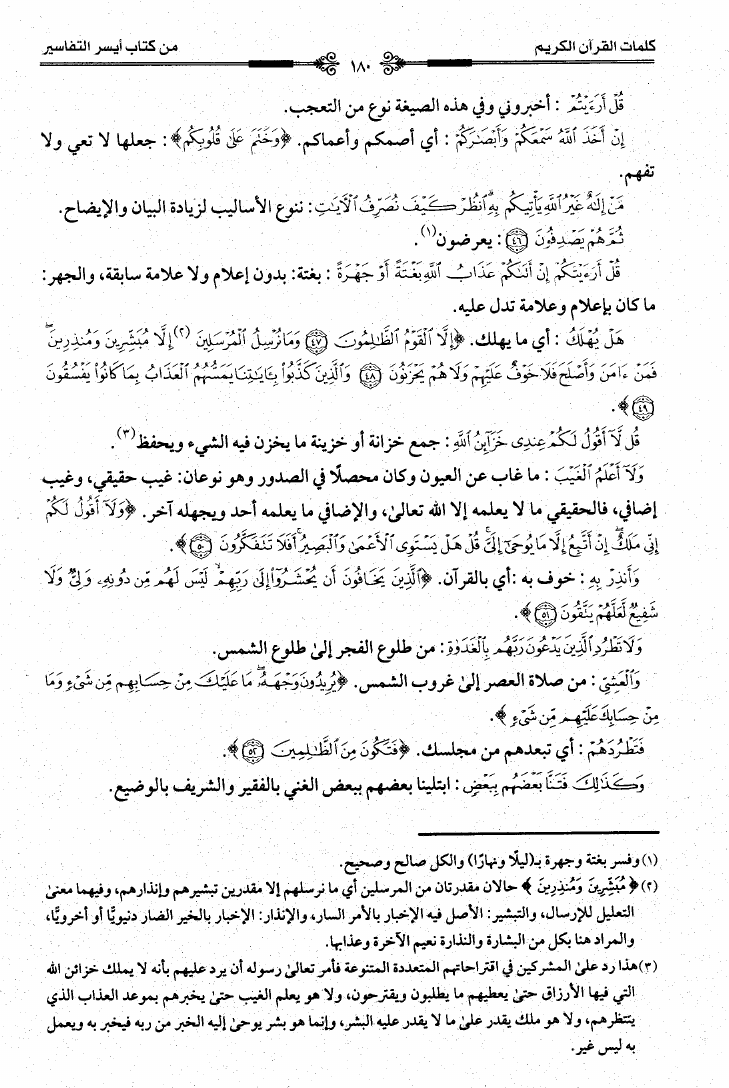 كلمات القرآن الكريم
١٨٠
من كتاب أيسر التفاسير
قُلْ أَرَءَيْتُمْ : أخبروني وفي هذه الصيغة نوع من التعجب.
إِنْ أَخَذَ ٱللَّهُ سَمْعَكُمْ وَأَبْصَٰرَكُمْ : أي أصمكم وأعماكم. ﴿وَخَتَمَ عَلَىٰ قُلُوبِكُم﴾ : جعلها لا تعي ولا
تفهم.
مَّنْ إِلَٰهٌ غَيْرُ ٱللَّهِ يَأْتِيكُم بِهِ ٱنظُرْ كَيْفَ نُصَرِّفُ ٱلْءَايَٰتِ : ننوع الأساليب لزيادة البيان والإيضاح.
ثُمَّ هُمْ يَصْدِفُونَ ٤٦ : يعرضون(١).
قُلْ أَرَءَيْتَكُمْ إِنْ أَتَىٰكُمْ عَذَابُ ٱللَّهِ بَغْتَةً أَوْ جَهْرَةً : بغتة: بدون إعلام ولا علامة سابقة، والجهر:
ما كان بإعلام وعلامة تدل عليه.
هَلْ يُهْلَكُ : أي ما يهلك. ﴿إِلَّا ٱلْقَوْمُ ٱلظَّٰلِمُونَ ٤٧ وَمَا نُرْسِلُ ٱلْمُرْسَلِينَ (٢) إِلَّا مُبَشِّرِينَ وَمُنذِرِينَ ۖ
فَمَنْ ءَامَنَ وَأَصْلَحَ فَلَا خَوْفٌ عَلَيْهِمْ وَلَا هُمْ يَحْزَنُونَ ٤٨ وَٱلَّذِينَ كَذَّبُوا۟ بِـَٔايَٰتِنَا يَمَسُّهُمُ ٱلْعَذَابُ بِمَا كَانُوا۟ يَفْسُقُونَ
٤٩﴾.
قُل لَّآ أَقُولُ لَكُمْ عِندِى خَزَآئِنُ ٱللَّهِ : جمع خزانة أو خزينة ما يخزن فيه الشيء ويحفظ(٣).
وَلَآ أَعْلَمُ ٱلْغَيْبَ : ما غاب عن العيون وكان محصلًا في الصدور وهو نوعان: غيب حقيقي، وغيب
إضافي، فالحقيقي ما لا يعلمه إلا الله تعالىٰ، والإضافي ما يعلمه أحد ويجهله آخر. ﴿وَلَآ أَقُولُ لَكُمْ
إِنِّى مَلَكٌ ۖ إِنْ أَتَّبِعُ إِلَّا مَا يُوحَىٰٓ إِلَىَّ ۚ قُلْ هَلْ يَسْتَوِى ٱلْأَعْمَىٰ وَٱلْبَصِيرُ ۚ أَفَلَا تَتَفَكَّرُونَ ٥٠﴾.
وَأَنذِرْ بِهِ : خوف به :أي بالقرآن. ﴿ٱلَّذِينَ يَخَافُونَ أَن يُحْشَرُوٓا۟ إِلَىٰ رَبِّهِمْ ۙ لَيْسَ لَهُم مِّن دُونِهِۦ وَلِىٌّ وَلَا
شَفِيعٌ لَّعَلَّهُمْ يَتَّقُونَ ٥١﴾.
وَلَا تَطْرُدِ ٱلَّذِينَ يَدْعُونَ رَبَّهُم بِٱلْغَدَوٰةِ : من طلوع الفجر إلىٰ طلوع الشمس.
وَٱلْعَشِىِّ : من صلاة العصر إلىٰ غروب الشمس. ﴿يُرِيدُونَ وَجْهَهُۥ ۖ مَا عَلَيْكَ مِنْ حِسَابِهِم مِّن شَىْءٍ وَمَا
مِنْ حِسَابِكَ عَلَيْهِم مِّن شَىْءٍ﴾.
فَتَطْرُدَهُمْ : أي تبعدهم من مجلسك. ﴿فَتَكُونَ مِنَ ٱلظَّٰلِمِينَ ٥٢﴾.
وَكَذَٰلِكَ فَتَنَّا بَعْضَهُم بِبَعْضٍ : ابتلينا بعضهم ببعض الغني بالفقير والشريف بالوضيع.
(١) وفسر بغتة وجهرة بـ(ليلًا ونهارًا) والكل صالح وصحيح.
(٢) ﴿مُبَشِّرِينَ وَمُنذِرِينَ﴾ حالان مقدرتان من المرسلين أي ما نرسلهم إلا مقدرين تبشيرهم وإنذارهم، وفيهما معنىٰ
التعليل للإرسال، والتبشير: الأصل فيه الإخبار بالأمر السار، والإنذار: الإخبار بالخير الضار دنيويًّا أو أخرويًّا،
والمراد هنا بكل من البشارة والنذارة نعيم الآخرة وعذابها.
(٣) هذا رد علىٰ المشركين في اقتراحاتهم المتعددة المتنوعة فأمر تعالىٰ رسوله أن يرد عليهم بأنه لا يملك خزائن الله
التي فيها الأرزاق حتىٰ يعطيهم ما يطلبون ويقترحون، ولا هو يعلم الغيب حتىٰ يخبرهم بموعد العذاب الذي
ينتظرهم، ولا هو ملك يقدر علىٰ ما لا يقدر عليه البشر، وإنما هو بشر يوحىٰ إليه الخبر من ربه فيخبر به ويعمل
به ليس غير.